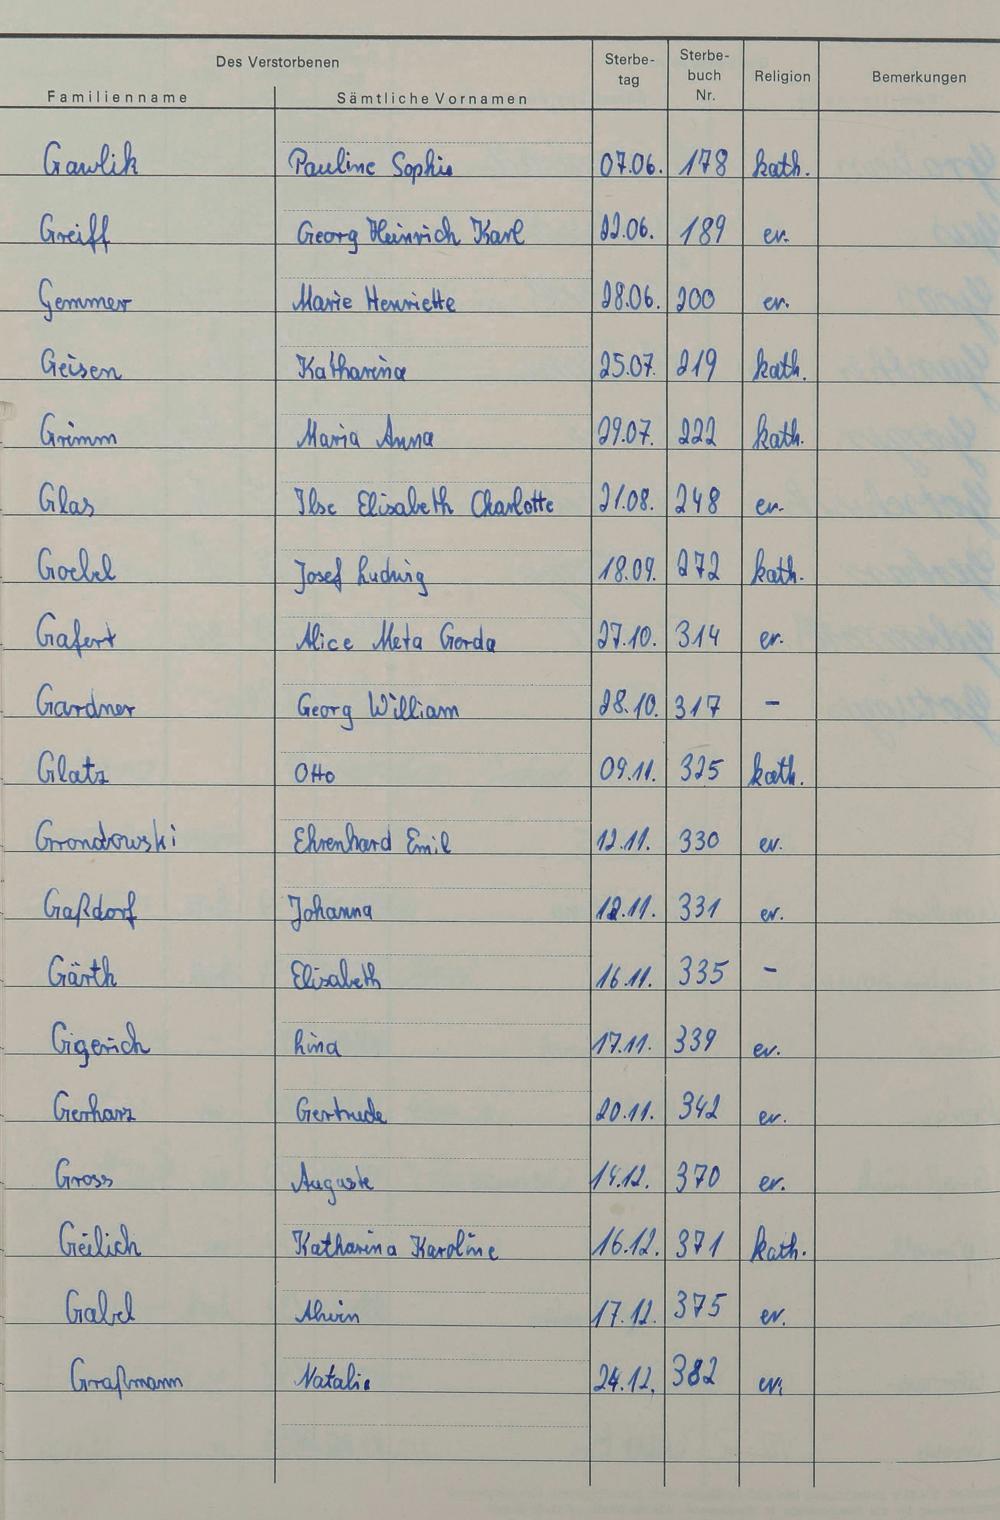 Des Verstorbenen
Familienname Sämtliche Vornamen Sterbe-tag Sterbe-buch Nr. Religion Bemerkungen
Gawlik Pauline Sophie 07.06. 178 kath.
Greiff Georg Heinrich Karl 22.06. 189 ev.
Gemmer Marie Henriette 28.06. 200 ev.
Geisen Katharina 25.07. 219 kath.
Grimm Maria Anna 29.07. 222 kath.
Glas Ilse Elisabeth Charlotte 21.08. 248 ev.
Goebel Josef Ludwig 18.09. 272 kath.
Gafert Alice Meta Gerda 27.10. 314 ev.
Gardner Georg William 28.10. 317 –
Glatz Otto 09.11. 325 kath.
Grondowski Ehrenhard Emil 12.11. 330 ev.
Gaßdorf Johanna 12.11. 331 ev.
Gärth Elisabeth 16.11. 335 –
Gigerich Lina 17.11. 339 ev.
Gerharz Gertrude 20.11. 342 ev.
Gross Auguste 14.12. 370 ev.
Geilich Katharina Karoline 16.12. 371 kath.
Gabel Alwin 17.12. 375 ev.
Graßmann Natalie 24.12. 382 ev.